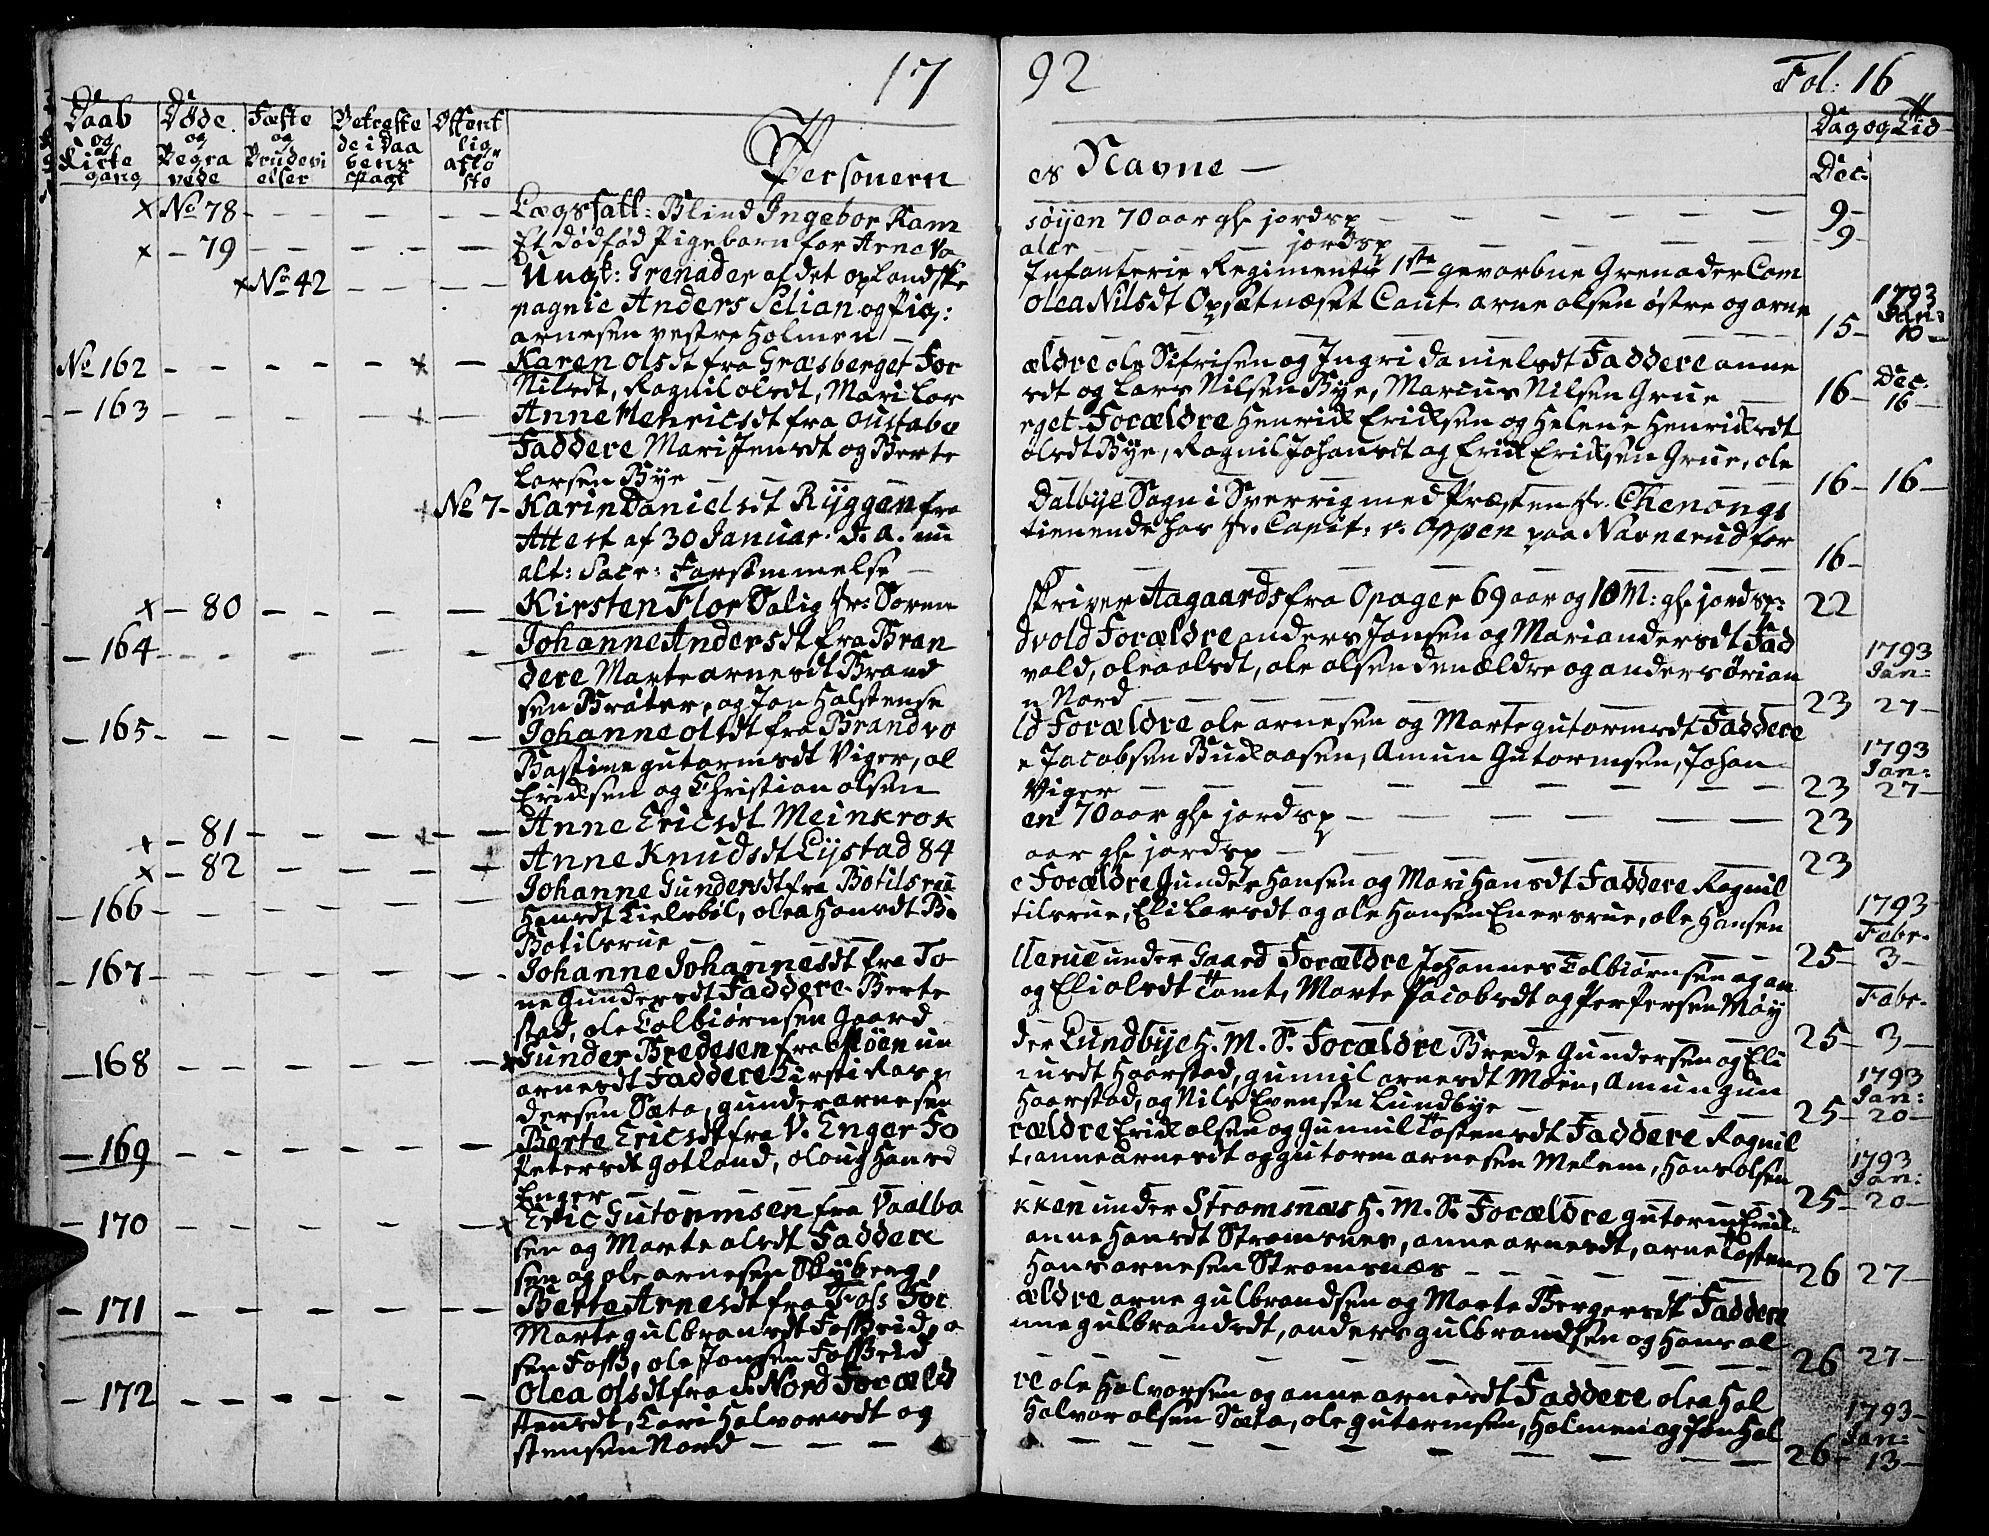 17 92 Fol: 16
Daab og Kirke gang
Døde og Begra vede
Fæste og Brudevi elser
Betræffe de i Daa bens pagt
Offent lig afløste
Personern es Navne —
Dag og Tid
Dec:
x No 78 - - - - - Lægsfatt: Blind Ingebor Kam søijen 70 aar gl: jordsp — — — — — 9-
x - 79 - - - - - Et dødfød Pigebarn for Arne Vo aler — jordsp — — — — 9-
x No 42 - - - Ungk: Grenader af det oplandske Infanterie Regiments 1ste gevorbne Grenader Com
pagnie Anders Selian og Pig: Olea Nilsdt Opsætnæset Caut. arne olsen østre og arne
arnesen vestre Holmen — 15 - 1793 Jan: 10 -
No 162 - - - - x - Karen olsdt fra Græsberget For ældre ole Sifrisen og Ingri danielsdt Faddere anne
Nilsdt, Ragnil olsdt, Mari Lar sdt og Lars Nilsen Bye, Marcus Nilsen Grue — 16 - Dec. 16 -
- 163 - - - - + - Anne Henricsdt fra Gustabe rget Forældre Henrick Ericksen og Helene Henricksdt
Faddere Mari Jensdt og Berte olsdt Bye, Ragnil Johansdt og Erick Ericksen Grue, ole
Larsen Bye — 16 - 16 -
+ No 7 - Karin Danielsdt Ryggen fra Dalbye Sogn i Sverrig med Præsten Hr. Chenongs
Attest af 30 Januar. d. a. nu tienende hos Hr. Capit: v. Oppen paa Navnerud for
alt: Sacr: Forsømmelse — 16 -
x - 80 - - - - Kirsten Flor Salig Hr: Soren skriver Aagaards fra Opager 69 aar og 10 M: gl: jordsp: 22
- 164 - - - - - Johanne Andersdt fra Bran dvold Forældre anders Jonsen og Mari andersdt Fad
dere Marte arnesdt Brand vold, olea olsdt, ole olsen den ældre og anders ørian
sen Bråten, og Jon Halstense n Nord — 23 1793 Jan: 27 -
- 165 - - - - - Johanne olsdt fra Brandvo ld Forældre ole arnesen og Marte gutormsdt Faddere
Bastine gutormsdt Viger, ol e Jacobsen Budaasen, Amun Gutormsen, Johan
Ericksen og Christian olsen Viger — 23 1793 Jan: 27 -
x - 81 - - - + - Anne Ericsdt Meinkrok en 70 aar gl: jordsp — 23
x - 82 - - - + Anne Knudsdt Lystad 84 aar gl: jordsp — 23
- 166 - - - - - Johanne Gundersdt fra Botilsru e Forældre Gunder Hansen og Mari Hansdt Faddere Ragnil
Hansdt Kielsbøl, olea Hansdt Bo tilsrue, Eli Larsdt og ole Hansen Enersrue, ole Hansen
Botilsrue — 25 - 1793 Febr. 3 -
- 167 - - - - - Johanne Johannesdt fra To llerue under Gaard Forældre Johannes Tolbiørnsen og an
ne Gundersdt Faddere Berte og Eli olsdt Tomt, Marte Jacobsdt og Per Persen Møy
stad, ole Tolbiørnsen Gaard — 25 - Febr. 3 -
- 168 - - - - x Gunder Bredesen fra Møen un der Lundbye H. M. S. Forældre Brede Gundersen og Eli
arnesdt Faddere Kirsti Rasm usdt Haarstad, gunnil arnesdt Moen, Amun gun
dersen Sæta, gunder arnesen Haarstad, og Nils Evensen Lundbye — 25 - 1793 Jan: 20 -
- 169 - - - - - Berte Ericsdt fra V. Enger Fo rældre Erick olsen og Gunnil Tostensdt Faddere Ragnil
Petersdt Gotland, oloug Hansd t, anne arnesdt og gutorm arnesen Melem, Hans olsen
Enger — 25 - 1793 Jan: 20 -
- 170 - - - - x Eric Gutormsen fra Vaalba kken under Stromsnæs H. M. S. Forældre gutorm Erick-
sen og Marte olsdt Faddere anne Hansdt Stromsnes, anne arnesdt, arne Tosten
sen og ole arnesen Skyberg, Hans arnesen Stromsnæs — 26 27 -
- 171 - - - - - Berte Arnesdt fra Foss For ældre arne gulbrandsen og Marte Bergersdt Faddere
Marte gulbransdt Fossseid, a nne gulbrandsdt, anders gulbrandsen og Hans ol
sen Foss, ole Jonsen Fosseid — 26 27 -
- 172 - - - - - Olea olsdt fra S. Nord Foræld re ole Halvorsen og anne arnesdt Faddere olea Hol
stensdt, Kari Halvorsdt og Halvor olsen Sæta, ole gutormsen, Holmen og Jon Hal
stensen Nord — 26 - 1793 Jan: 13 -